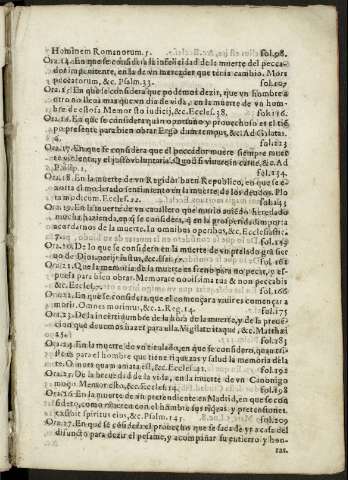 Hominem Romanorum. 5. fol. 98.
Ora. 14. En que se considera la infelicidad de la muerte del pecca-
dor impenitente, en la de vn mercader que tenia cambio. Mors
peccatorum, &c. Psalm. 33. fol. 107
Ora. 15. En que se considera que podemos dezir, que vn hombre a
otro no lleua mas que vn dia de vida, en la muerte de vn hom-
bre de estofa. Memor esto iudicij, &c. Eccles. 38. fol. 116.
Ora. 16. En que se considera quan oportuno y prouechoso es el tiẽ
po presente para bien obrar. Ergo dum tempus, &c. Ad Galatas.
6. fol. 123
Ora. 17. En que se considera que el peccador muere siempre muer
te violenta, y el justo voluntaria. Quod si viuere in carne, &c. Ad
Philip. 1. fol. 134.
Ora. 18. En la muerte de vn Regidor buen Republico, en que se
el moderado sentimiento en la muerte de los deudos. Plo
ra modicum. Eccles. 22. fol. 143
Ora. 19. En la muerte de vn cauallero que murio auiendo heredado
mucha hazienda, en q̃ se considera, q̃ en la prosperidad importa
acordarnos de la muerte. In omnibus operibus, &c. Ecclesiastic.
7. fol. 152
Ora. 20. De lo que se considera en la muerte de vn prelado grã sier
uo de Dios. perijt iustus, &c. Isai. 57. fol. 161
Ora. 21. Que la memoria de la muerte es freno para no pecar, y es-
puela para bien obrar. Memorare nouissima tua & non peccabis
&c. Eccles. 7. fol. 166
Ora. 22. En que se considera, que el començar a viuir es començar a
morir. Omnes morimur, &c. 2. Reg. 14. fol. 175
Ora. 23. De la incertidumbre de la hora de la muerte, y de la preuẽ-
cion que deuemos hazer para ella. Vigilate itaque, &c. Matthæi
25. fol. 183
Ora. 24. En la muerte de vn titulado, en que se considera, quan tri-
ste es para el hombre que tiene riquezas y salud la memoria de la muer-
te. O mors quam amata est, &c. Eccles. 41. fol. 192
Ora. 25. De la breuedad de la vida, en la muerte de vn Canonigo
moço. Memor esto, &c. Eccles. 14. fol. 198
Ora. 26. En la muerte de vn pretendiente en Madrid, en que se con
sidera, como mueren con el hombre sus riqzas y pretensiones.
exibit spiritus eius, &c. Psalm. 145. fol. 209
Ora. 27. En que se cõsidera el prouecho que se saca de yr a casa del
difuncto para dezir el pesame, y acompañar su entierro y hon-
ras.